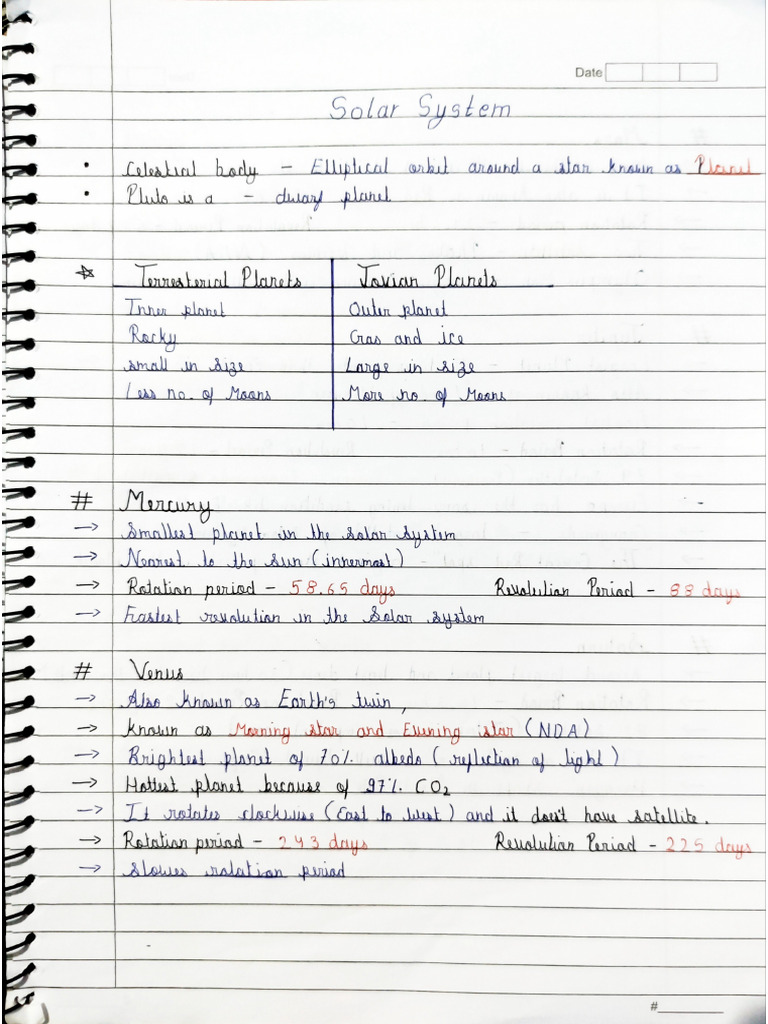 Date
Solar System
• Celestial body – Elliptical orbit around a star known as Planet
• Pluto is a – dwarf planet
☆ Terresterial Planets | Jovian Planets
Inner planet | Outer planet
Rocky | Gas and ice
small in size | Large in size
Less no. of Moons | More no. of Moons
# Mercury
→ Smallest planet in the solar system
→ Nearest to the Sun (innermost)
→ Rotation period – 58.65 days Revolution Period – 88 days
→ Fastest revolution in the Solar system
# Venus
→ Also known as Earth's twin,
→ Known as Morning star and Evening star (NDA)
→ Brightest planet of 70% albedo (reflection of light)
→ Hottest planet because of 97% CO₂
→ It rotates clockwise (East to West) and it doesn't have satellite.
→ Rotation period – 243 days Revolution Period – 225 days
→ Slowes rotation period
#